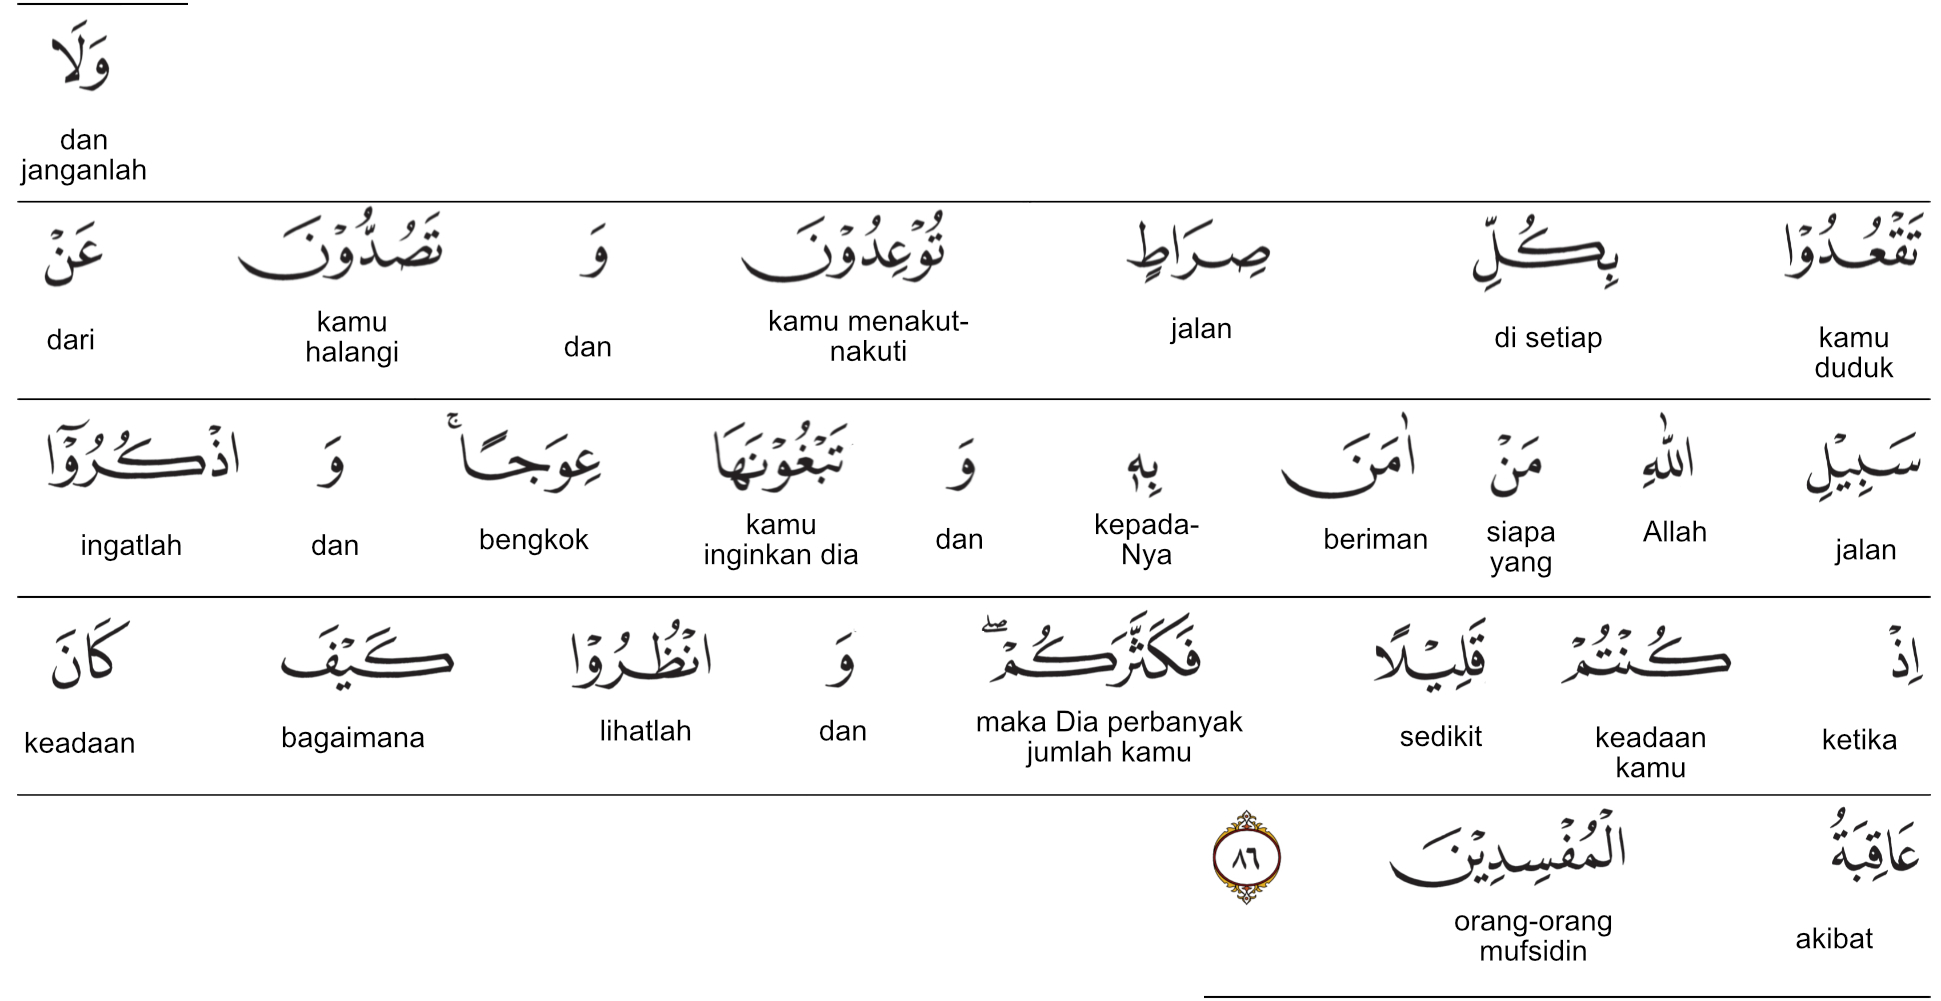 وَلَا
dan janganlah
تَقْعُدُوْا بِكُلِّ صِرَاطٍ تُوْعِدُوْنَ وَ تَصُدُّوْنَ عَنْ
kamu duduk di setiap jalan kamu menakut-nakuti dan kamu halangi dari
سَبِيْلِ اللّٰهِ مَنْ اٰمَنَ بِهٖ وَ تَبْغُوْنَهَا عِوَجًاۚ وَ اذْكُرُوْٓا
jalan Allah siapa yang beriman kepada-Nya dan kamu inginkan dia bengkok dan ingatlah
اِذْ كُنْتُمْ قَلِيْلًا فَكَثَّرَكُمْۖ وَ انْظُرُوْا كَيْفَ كَانَ
ketika keadaan kamu sedikit maka Dia perbanyak jumlah kamu dan lihatlah bagaimana keadaan
عَاقِبَةُ الْمُفْسِدِيْنَ ٨٦
akibat orang-orang mufsidin